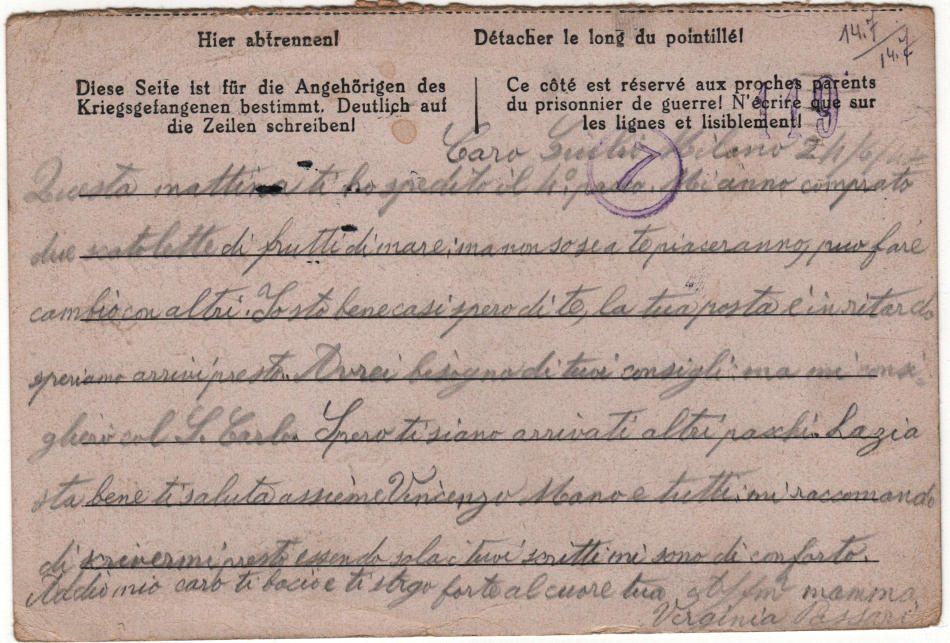 Hier abtrennen! Détacher le long du pointillé! 14.7
14.7
Diese Seite ist für die Angehörigen des
Kriegsgefangenen bestimmt. Deutlich auf
die Zeilen schreiben!
Ce côté est réservé aux proches parents
du prisonnier de guerre! N'écrire que sur
les lignes et lisiblement!
119
7
Caro Milano 24/6/
Questa mattina ti ho spedito il 4° pacco. Mi anno comprato
due scatolette di frutti di mare; ma non so se a te piaseranno, puo fare
cambio con altri. Io sto bene casi spero di te, la tua posta è in ritardo
speriamo arrivi presto. Avrei bisogno di tuoi consigli: ma mi consi-
glierò col S. Carlo. Spero ti siano arrivati altri pacchi. La zia
sta bene ti saluta assieme Vincenzo Mano e tutti; mi raccomando
di scrivermi presto essendo sola i tuoi scritti mi sono di conforto.
Addio mio caro ti bacio e ti strgo forte al cuore tua mamma
Virginia